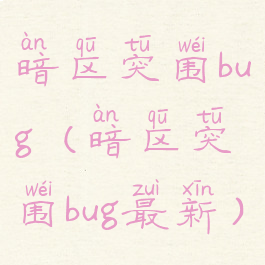 àn qū tū wéi
暗区突围bu
àn qū tū
g（暗区突
wéi zuì xīn
围bug最新）